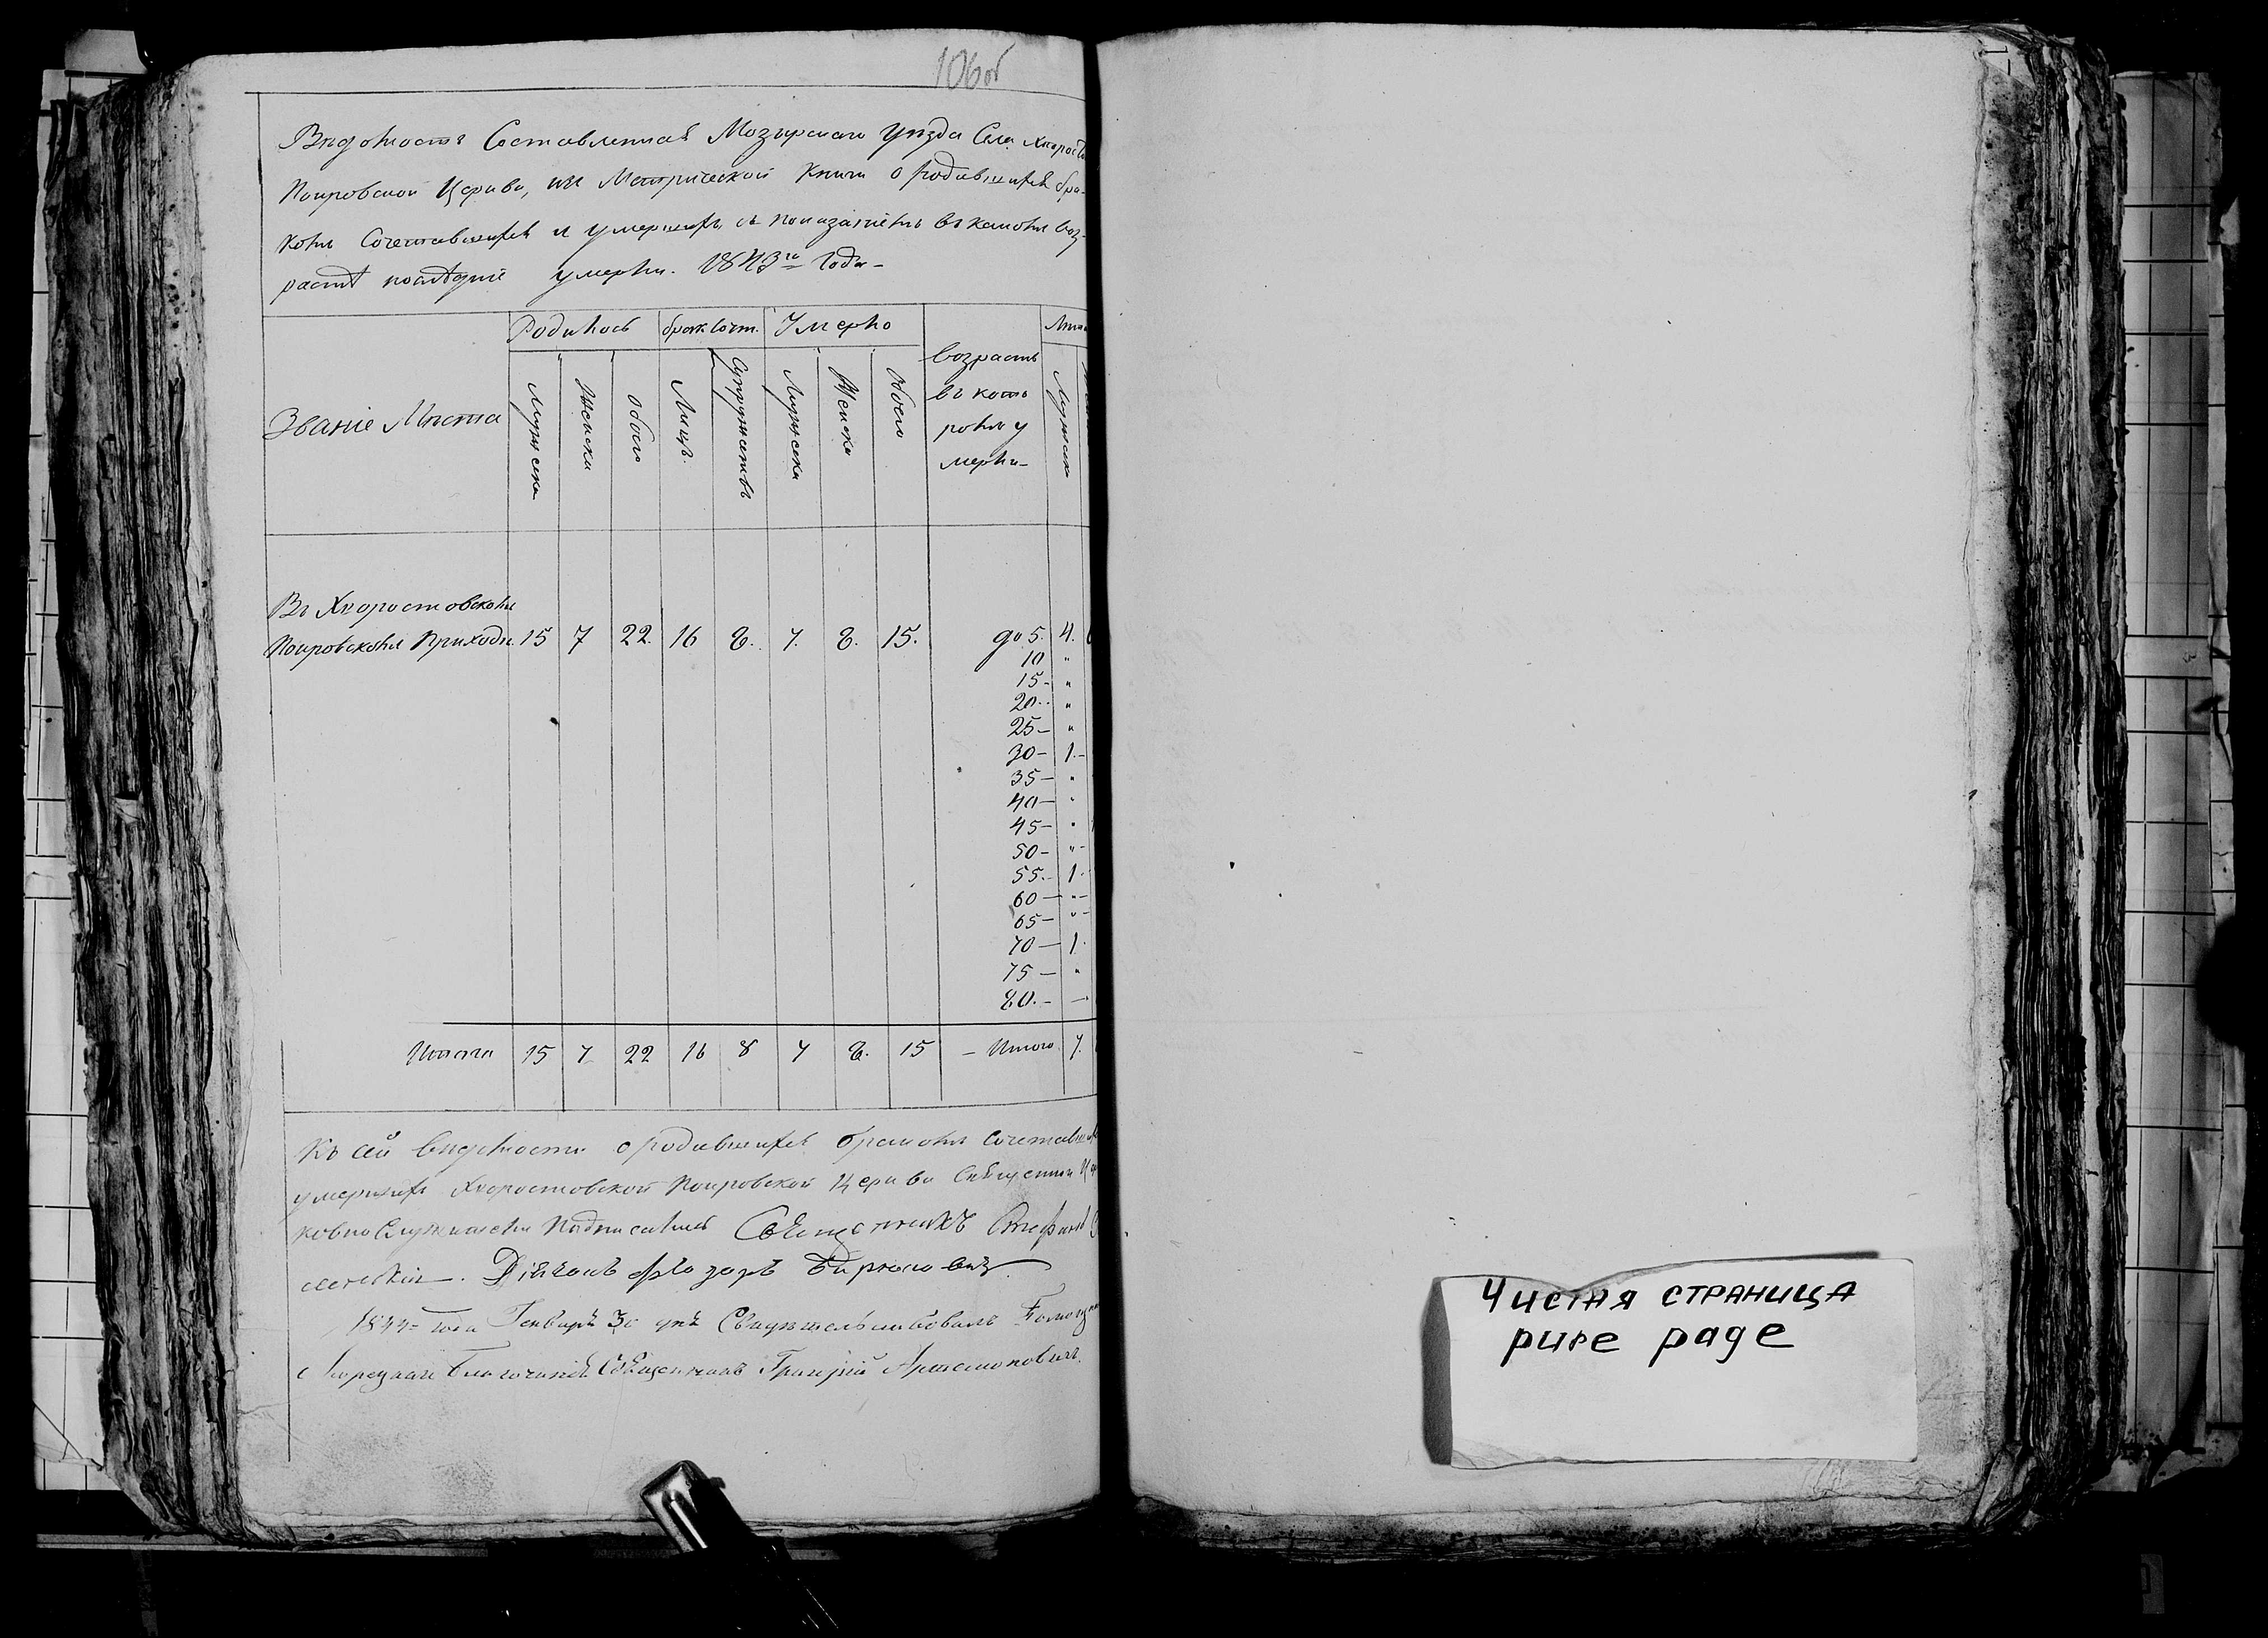 106об
Вѣдомость Составленная Мозырскаго Уѣзда Села Хворост
Покровской Церкви, изъ Метрической Книги о родившихся бра-
комъ Сочетавшихся и умершихъ, съ показаніемъ въ какомъ воз-
растѣ послѣдніе умерли. 1843го Года-
Родилось брак. Сочт. Умерло
Званіе Мѣста Мужеска Женска Обоего Лицъ. Супружествъ Мужеска Женска Обоего
возрастъ
въ кото
ромъ у
мерли-
Мужска
Въ Хворостовскомъ
Покровскомъ Приходѣ. 15 7 22. 16 8. 7. 8. 15. до 5. 4.
10 "
15- "
20.. "
25- "
30- 1.-
35- "
40- "
45- "
50- "-
55.- 1.
60- "-
65- "-
70- 1.
75- "
80.- -
Итого 15 7 22 16 8 7 8. 15 - Итого. 7.
Къ сей вѣдомости о родившихся бракомъ Сочетавших
умершихъ Хворостовской Покровской Церкви Священно Цер
ковно Служители Подписались Священникъ Стефанъ
Діяконъ Лазарь Бирюкович
1844 года Генваря 30 дня Свидѣтельствовалъ
Благочинный Священникъ Григорій Артемоновичъ.
Чистая страница
pure page